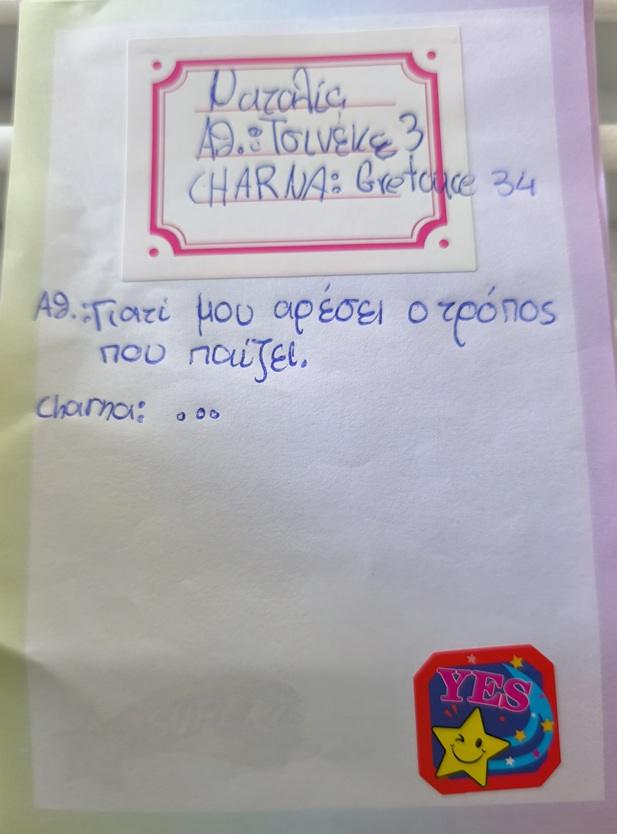 Ναταλία
Αθ.: Τσινέκε 3
CHARNA: Gretouce 34
Αθ.: Γιατί μου αρέσει ο τρόπος
που παίζει.
Charna: ...
YES